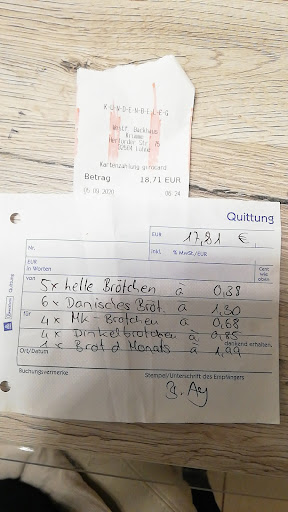 K-U-N-D-E-N-B-E-L-E-G
Westf. Backhaus
Herforder Str. 75
32584 Löhne
Kartenzahlung
Betrag 18,71 EUR
05.09.2020 08:24
Quittung
EUR 17,81 €
Nr. inkl. % MwSt./EUR
EUR in Worten
Cent wie oben
von 5x helle Brötchen à 0,38
6x Dänisches Bröt. à 1,30
für 4x MK-Brötchen à 0,68
4x Dinkelbrötchen à 0,85
dankend erhalten.
1x Brot d Monats à 1,99
Ort/Datum
Buchungsvermerke Stempel/Unterschrift des Empfängers
Quittung